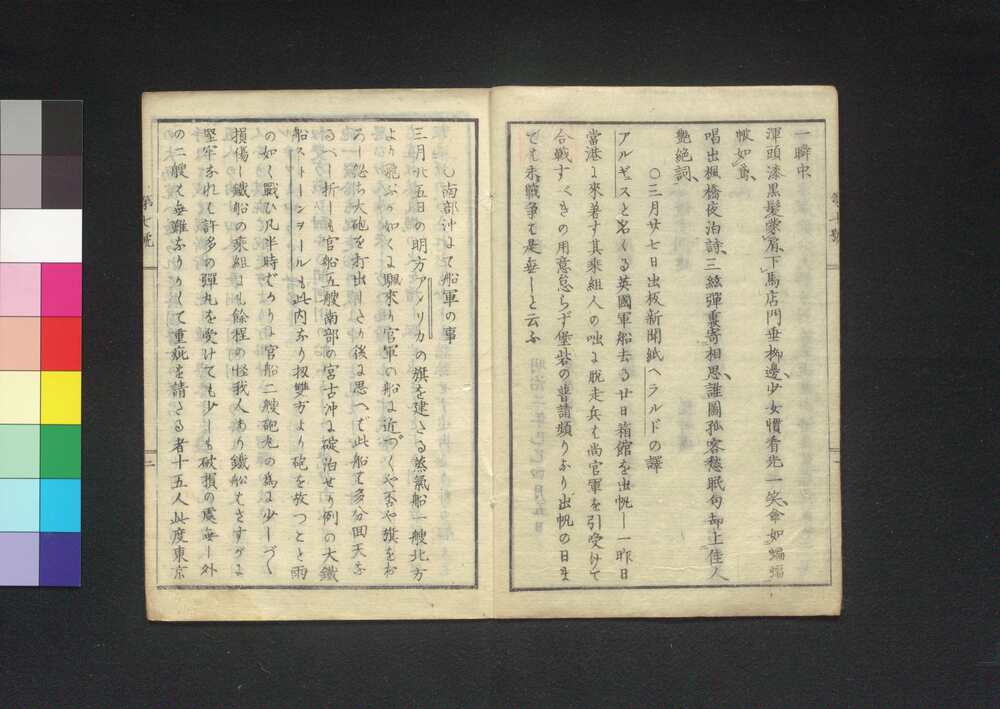 一瞬中
渾頭漆黒髮蒙肩、下馬店門垂柳邊、少女慣看先一笑、傘如蝙蝠
帔如鳶、
唱出楓橋夜泊詩、三絃彈裏寄相思、誰圖孤客愁眠句、却上佳人
艶絶詞、
〇三月廿七日出板新聞紙ヘラルドの譯
アルギュスと名くる英國軍船去る廿日箱館を出帆し一昨日
當港に來着す其乘組人の咄に脱走兵は尚官軍を引受けて
合戰すべきの用意怠らず堡砦の普請頻りなり出帆の日ま
でも未戰爭は是無しと云ふ
〇南部沖にて船軍の事
三月廿五日の明方アメリカの旗を建たる蒸氣船一艘北方
より飛ぶが如くに颿來り官軍の船に近づくや否や旗をお
ろし忽ち大砲を打出したり後に思へば此船は多分回天な
るべし折しも官船五艘南部の宮古沖に碇泊せり例の大鐵
船ストーンヲールも此内なり扨雙方より砲を放つこと雨
の如く戰ひ凡半時ばかり官船二艘砲丸の爲に少しづゝ
損傷し鐵船の乘組にも餘程の怪我人あり鐵船はさすがに
堅牢なれば許多の彈丸を受けても少しも破損の處無し外
の二艘は無難なりかくて重疵を請たる者十五人此度東京
第七號
二